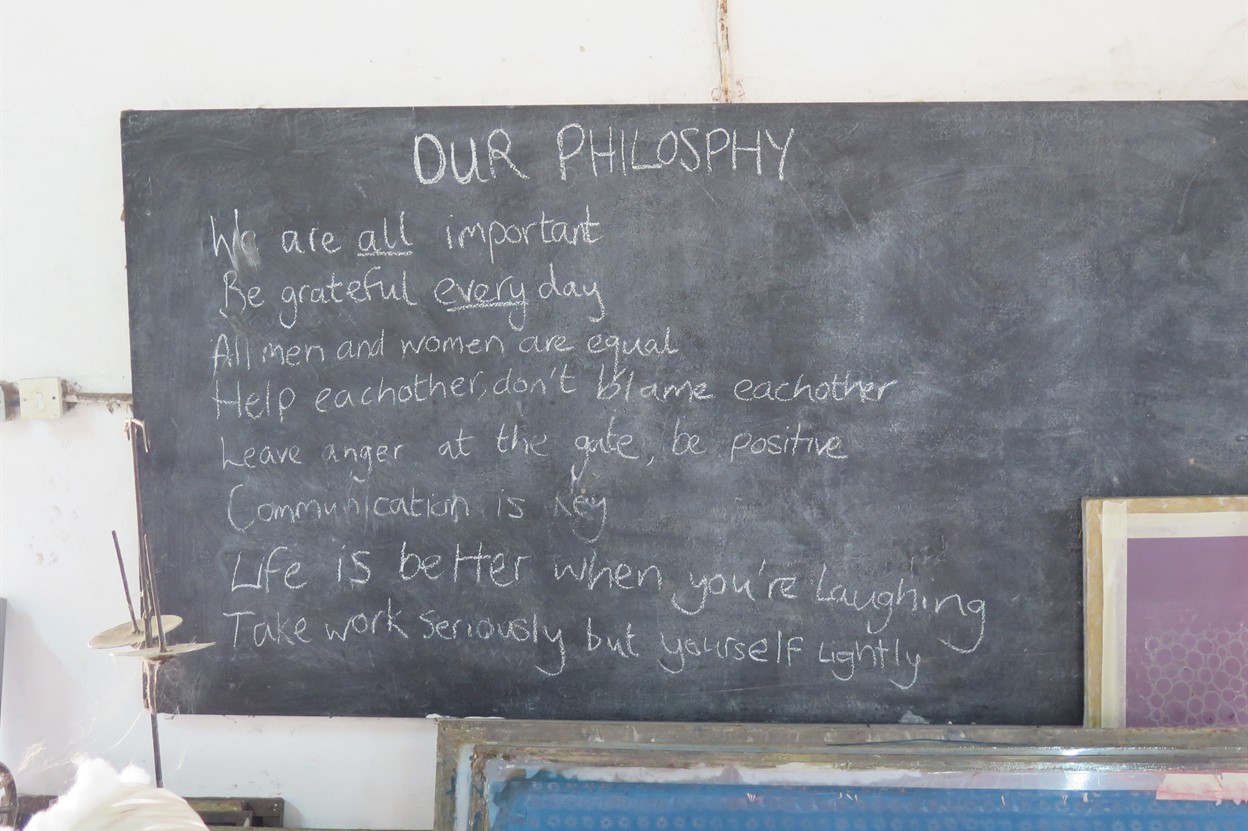 OUR PHILOSPHY
We are all important
Be grateful every day
All men and women are equal
Help eachother, don't blame eachother
Leave anger at the gate, be positive
Communication is key
Life is better when you're laughing
Take work seriously but yourself lightly